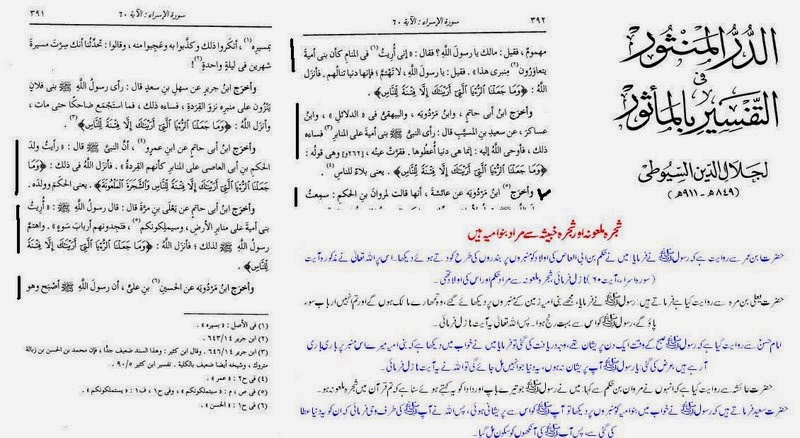 ٣٩١
سورة الإسراء : الآية ٦٠
بمسيره(١)، أنكروا ذلك وكذّبوا به وعجبوا منه، وقالوا: تحدّثنا أنك سِرْتَ مسيرة
شهرين في ليلةٍ واحدةٍ(٢)!
وأخرَج ابنُ جريرٍ عن سهلِ بنِ سعدٍ قال: رأى رسولُ اللَّهِ ﷺ بني فلانٍ
يَنْزُون على منبرِه نَزْوَ القِرَدةِ، فساءه ذلك، فما استَجْمَع ضاحكًا حتى مات،
وأنزَل اللَّهُ: ﴿وَمَا جَعَلْنَا الرُّءْيَا الَّتِي أَرَيْنَاكَ إِلَّا فِتْنَةً لِّلنَّاسِ﴾(٣).
وأخرَج ابنُ أبي حاتمٍ عن ابنِ عمرٍو(٤)، أن النبيَّ ﷺ قال: «رأيتُ ولدَ
الحكمِ بنِ أبي العاصى على المنابرِ كأنهم القِرَدةُ». فأنزَل اللَّهُ في ذلك: ﴿وَمَا
جَعَلْنَا الرُّءْيَا الَّتِي أَرَيْنَاكَ إِلَّا فِتْنَةً لِّلنَّاسِ وَالشَّجَرَةَ الْمَلْعُونَةَ﴾. يعني الحكمَ وولدَه.
وأخرَج ابنُ أبي حاتمٍ عن يَعْلَى بنِ مرَّةَ قال: قال رسولُ اللَّهِ ﷺ: «أُرِيتُ
بني أميةَ على منابرِ الأرضِ، وسيملِكونكم(٥)، فتجدونهم أربابَ سوءٍ». واهتمَّ
رسولُ اللَّهِ ﷺ لذلك؛ فأنزَل اللَّهُ: ﴿وَمَا جَعَلْنَا الرُّءْيَا الَّتِي أَرَيْنَاكَ إِلَّا فِتْنَةً
لِّلنَّاسِ﴾.
وأخرَج ابنُ مَرْدُويَه عن الحسينِ(٦) بنِ عليٍّ، أن رسولَ اللَّهِ ﷺ أصْبَح وهو
(١) في الأصل: «بسيره».
(٢) ابن جرير ٦٤٣/١٤
(٣) ابن جرير ٦٤٦/١٤. وقال ابن كثير: وهذا السند ضعيف جدًّا، فإن محمد بن الحسن بن زبالة
متروك، وشيخه أيضا ضعيف بالكلية. تفسير ابن كثير ٩٠/٥.
(٤) في ح ٢: «عمر».
(٥) في ص، م: «سيتملكونكم»، وفي ح ١، ف ١: «يستملكونكم».
(٦) في ح ١: «الحسن».
٣٩٢
سورة الإسراء : الآية ٦٠
مهمومٌ، فقيل: مالك يا رسولَ اللَّهِ؟ فقال: «إني أُرِيتُ(١) في المنامِ كأن بني أميةَ
يتعاوَرُون(٢) مِنبرى هذا». فقيل: يا رسولَ اللَّهِ، لا تَهْتَمَّ؛ فإنها دنيا تنالُهم. فأنزَل
اللَّهُ: ﴿وَمَا جَعَلْنَا الرُّءْيَا الَّتِي أَرَيْنَاكَ إِلَّا فِتْنَةً لِّلنَّاسِ﴾.
وأخرَج ابنُ أبي حاتمٍ، وابنُ مَرْدُويَه، والبيهقيُّ في «الدلائلِ»، وابنُ
عساكرَ، عن سعيدِ بنِ المسيَّبِ قال: رأى النبيُّ ﷺ بني أميةَ على المنابرِ(٣)، فساءه
ذلك، فأوحَى اللَّهُ إليه: إنما هى دنيا أُعطوها. فقَرَّت عينُه، [٢٦٢و] وهى قولُه:
﴿وَمَا جَعَلْنَا الرُّءْيَا الَّتِي أَرَيْنَاكَ إِلَّا فِتْنَةً لِّلنَّاسِ﴾. يعني: بلاءً للناسِ(٤).
وأخرَج(٥) ابنُ مَرْدُويَه عن عائشةَ، أنها قالت لمروانَ بنِ الحكمِ: سمِعتُ
الدُّرُّ المَنْثُور
في
التَّفْسِيرِ بِالمَأْثُور
لجلال الدّين السّيوطي
(٨٤٩هـ - ٩١١هـ)
شجرہ ملعونہ اور شجرہ خبیثہ سے مراد بنو امیہ ہیں
حضرت ابن عمر سے روایت ہے کہ رسول ﷺ نے فرمایا: میں نے حکم بن ابی العاص کی اولاد کو منبروں پر بندروں کی طرح کودتے ہوئے دیکھا۔ اس پر اللہ تعالیٰ نے مذکورہ آیت
(سورہ اسراء، آیت ۶۰) نازل فرمائی شجرہ ملعونہ سے مراد حکم اور اس کی اولاد تھی۔
حضرت یعلیٰ بن مرہ سے روایت کیا ہے فرماتے ہیں رسول ﷺ نے فرمایا، مجھے بنی امیہ زمین کے منبروں پر دیکھائے گئے، وہ تمھارے مالک ہوں گے اور تم انہیں ارباب سوء
پاؤ گے، رسول ﷺ کو اس سے بہت رنج ہوا۔ پس اللہ تعالیٰ یہ آیت نازل فرمائی۔
امام حسن سے روایت کیا ہے کہ رسول ﷺ صبح کے وقت ایک دن پریشان تھے، وجہ دریافت کی گئی تو فرمایا میں نے خواب میں دیکھا ہے کہ بنی امیہ میرے اس منبر پر باری باری
آرہے ہیں، عرض کی گئی: یا رسول ﷺ پریشان نہ ہوں، یہ دنیا ہے جو انہیں مل جائے گی تو اللہ نے یہ آیت نازل فرمائی۔
حضرت عائشہ سے روایت کیا ہے کہ انہوں نے مروان بن حکم سے کہا، میں نے رسول ﷺ کو تیرے باپ اور دادا کو یہ کہتے ہوئے سنا ہے کہ تم قرآن میں شجرہ ملعونہ ہو۔
حضرت سعید فرماتے ہیں کہ رسول ﷺ نے خواب میں بنو امیہ کو منبروں پر دیکھا تو آپ ﷺ کو اس سے پریشانی ہوئی، پس اللہ نے آپ ﷺ کی طرف وحی فرمائی کہ ان کو یہ دنیا عطا
کی گئی ہے پس آپ ﷺ کی آنکھوں کو سکون مل گیا۔